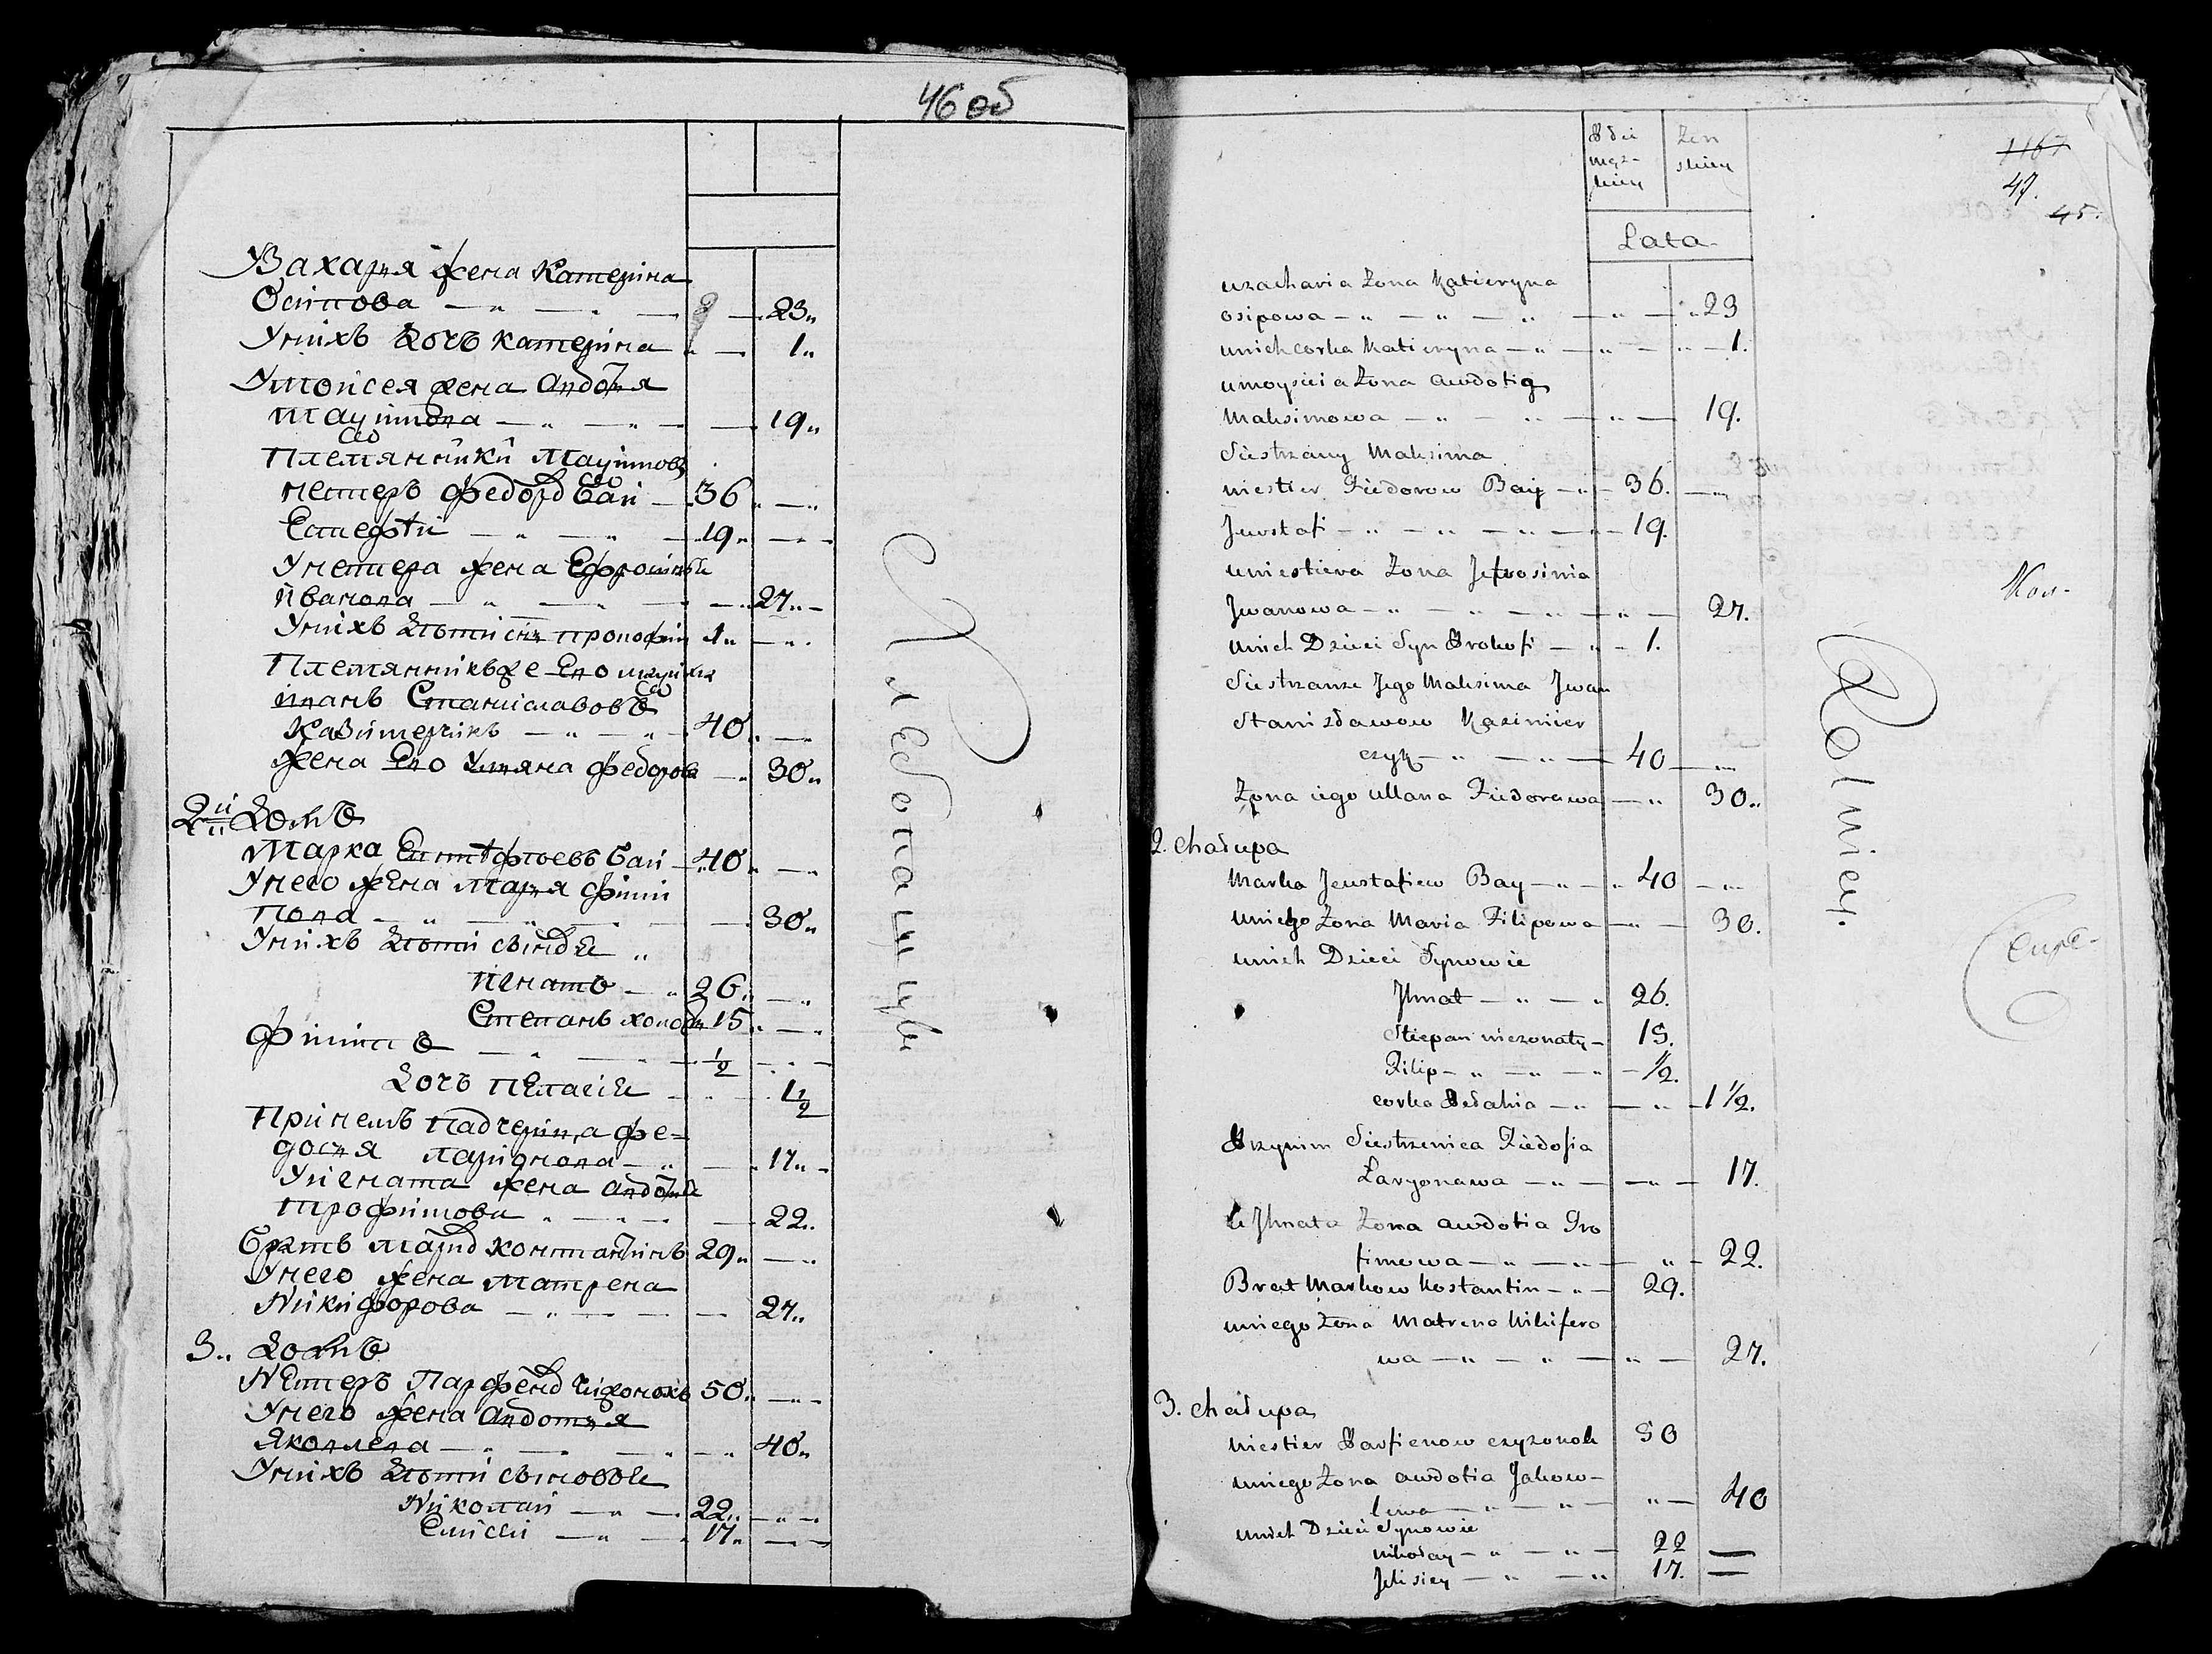 46 об
Узахария жена Катерина
Осипова — „ — „ — 23„
Унихъ дочь катерина „ — 1„
Умоисея жена Авдотя
Маѯимова — „ — „ — 19„
Племянники Маѯимовы
нестеръ федоровъ баи — 36 „ — „
Естефеи — „ — „ — 19„ — „ —
Унестера жена Ефросинья
ивановa — „ — „ — 27„ —
Унихъ дѣти снъ прокофии 1„ — „
Племянникъже Его маѯима
иванъ Станиславовъ
Казимерчикъ — „ — „ — 40„ — „
жена Его Уляна федорова — „ 30„
2й домъ
Марка Евстефѣевъ баи — 40„ — „
Унего жена Маря фили
пова — „ — „ — 30„
Унихъ дѣти сыновья „
игнатъ — „ 26„ — „
Степанъ холостъ 15„ — „
филипъ — „ — 1/2 — „ —
дочь пелагия — „ — 1 1/2
При немъ падчерица фе-
досия ларионова — „ — „ 17„ —
Уигната жена авдотья
трофимова „ — „ — 22„
братъ марковъ константинъ 29„ — „
Унего жена матрена
Никифорова — „ — 27„
3„ домъ
Нестеръ Парфеновъ чижонокъ 50„ — „ —
Унего жена авдотия
Яковлева — „ — „ — „ 40„
Унихъ дѣти сыновья
Николаи — „ — 22„ — „ —
Елисеи — „ — 17„ — —
Хлебопашцы
męz- Zen
kiey skiey
Lata
1167
47.
45.
uzacharia Zona Katieryna
osipowa — „ — „ — „ — „ — „ 23
unich corka Katieryna — „ — „ — „ — 1.
umoysieia Zona awdotia
Maksimowa — „ — „ — „ — 19.
Siestrzany Maksima
niestier Fiedorow Bay — „ — 36. — „
Jewstafi — „ — „ — „ — 19.
uniestiera Zona Jefrosinia
Jwanowa — „ — „ — „ — „ — 27.
unich Dzieci Syn Prokofi — „ — 1.
Siestrzanze Jego Maksima Jwan
Stanisławow Kazimier
czyk — „ — „ — 40 — „
Zona iego ullana Fiedorawa — „ 30„
2. chałupa
Marka Jewstafiew Bay — „ — „ 40 — „
uniego Zona Maria Filipowa — „ — 30.
unich Dzieci Synowie
Jhnat — „ — „ 26.
Stiepan niezonaty — 15.
Filip — „ — „ — „ — 1/2.
corka Pełahia — „ — „ — 1 1/2.
Przynim Siestrzenica Fiedosia
Laryonawa — „ — — „ — 17.
u Jhnata Zona awdotia Tro
fimowa — „ — „ — „ — 22.
Brat Markow Kostantin — „ — 29.
uniego Zona Matrena Nikifero
wa — „ — „ — „ — 27.
3. chałupa
Niestier Parfienow czyzonok 50
uniego Zona awdotia Jakow-
lewa — „ — „ — „ — 40
unich Dzieci Synowie
Nikołay — „ — „ — 22 —
Jelisiey — „ — „ 17. —
Rolnicy.
Kon-